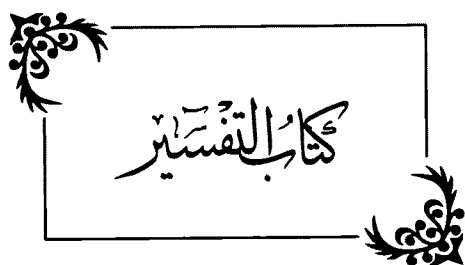 كتاب التفسير